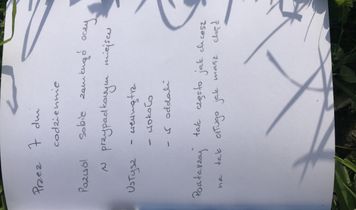 Przez 7 dni
codziennie
Pozwól sobie zamknąć oczy
w przypadkowym miejscu
Usłysz - wewnątrz
- wokoło
- w oddali
Powtarzaj tak często jak chcesz
na tak długo jak masz chęć